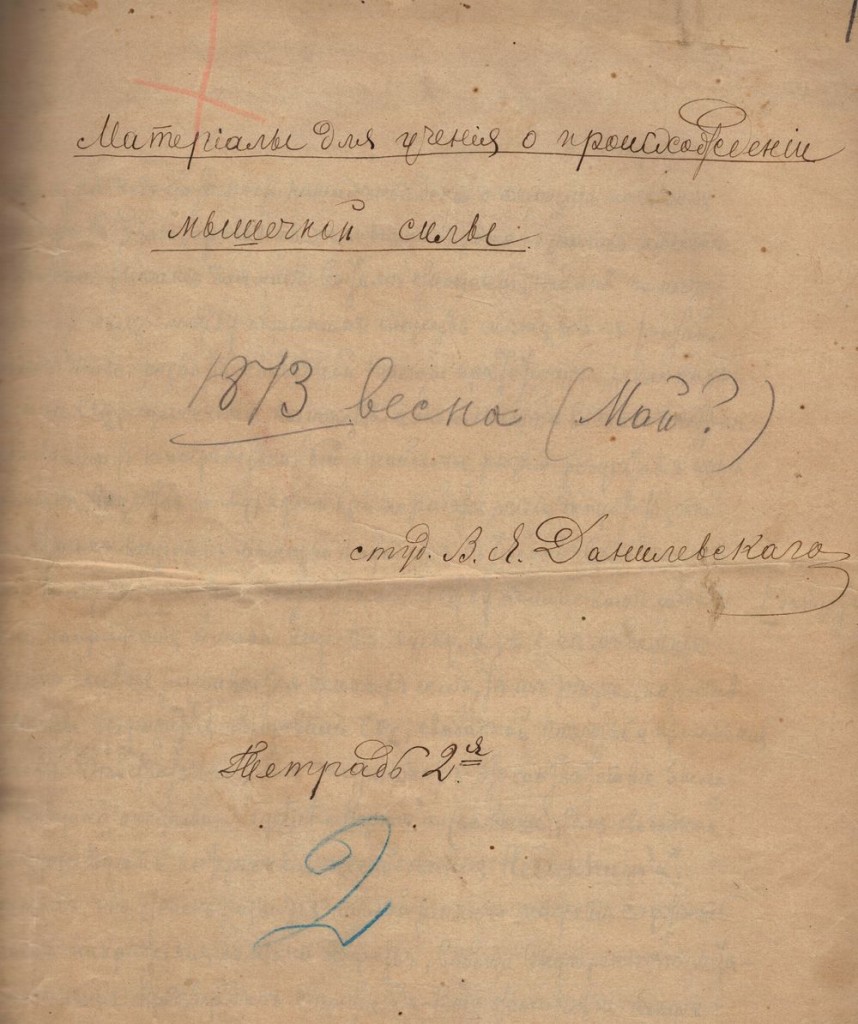 Матеріалы для ученія о происхожденіи
мышечной силы.
1873 весна (Май?)
студ. В. Я. Данилевскаго
Тетрадь 2ая
2